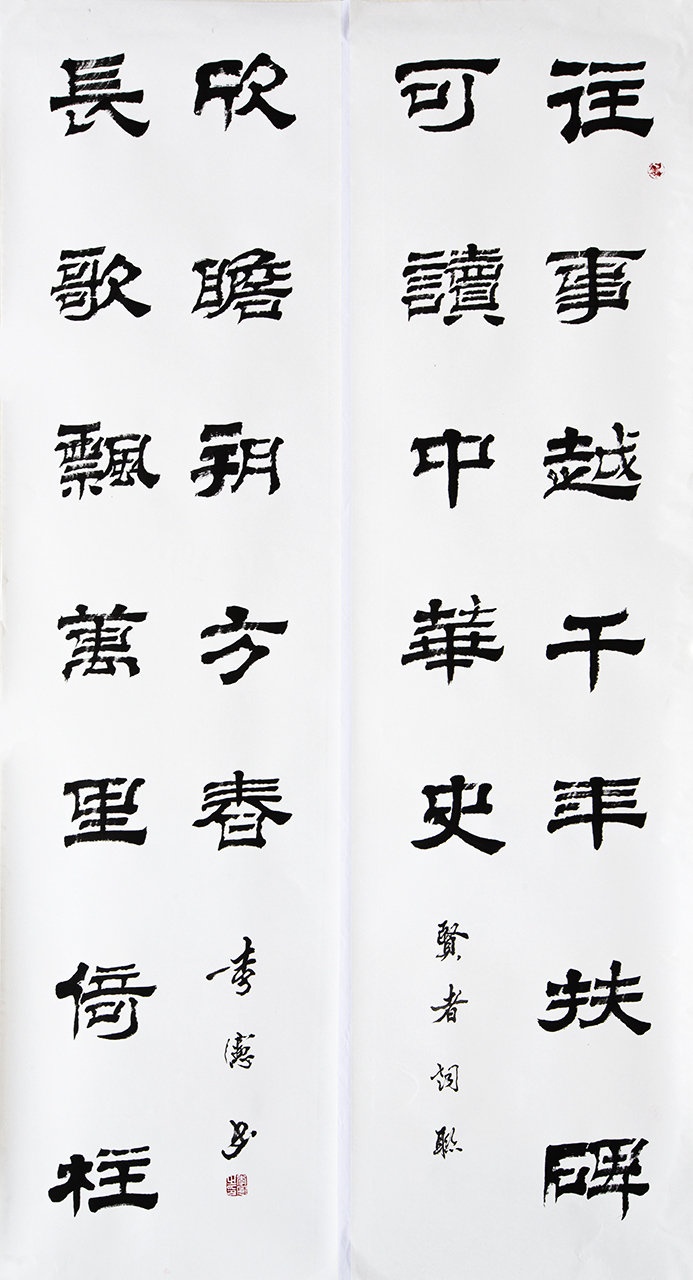 往事越千年扶碑
可讀中華史
賢者詞聯
長歌飄萬里倚柱
欣瞻朔方春
李憲书